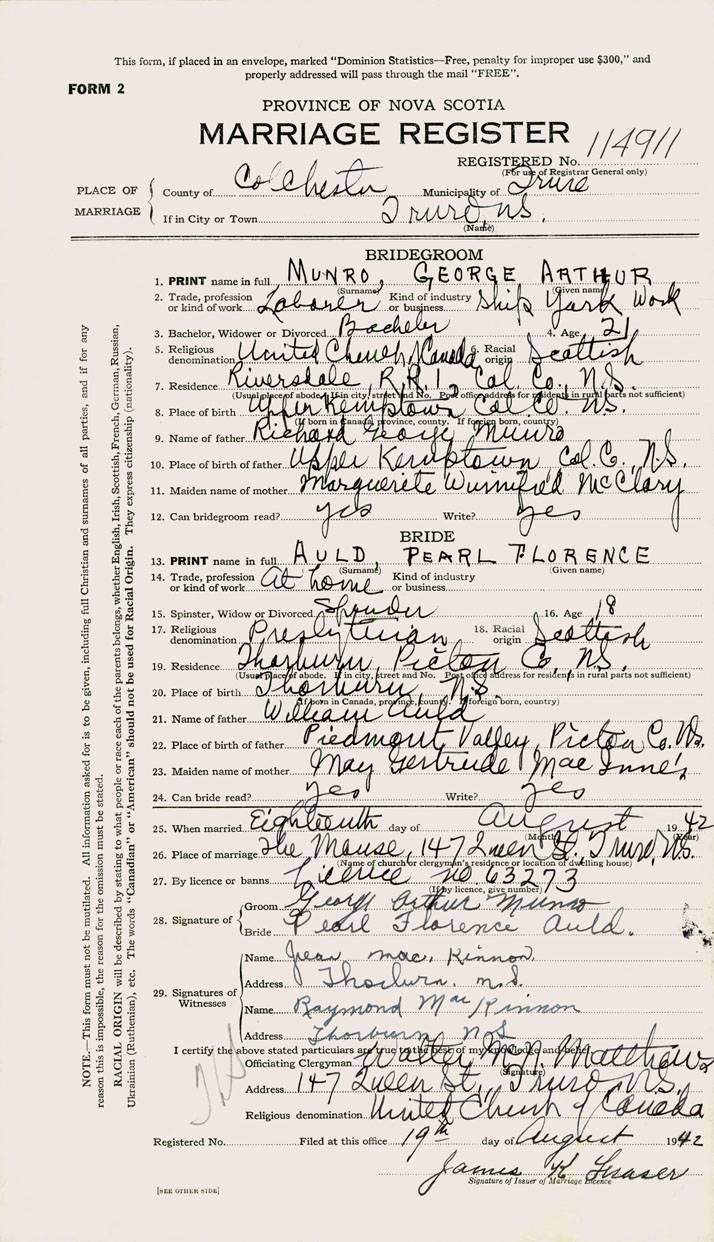 This form, if placed in an envelope, marked "Dominion Statistics—Free, penalty for improper use $300," and
properly addressed will pass through the mail "FREE".
FORM 2
PROVINCE OF NOVA SCOTIA
MARRIAGE REGISTER
REGISTERED No. 114911
(For use of Registrar General only)
PLACE OF MARRIAGE
County of Colchester Municipality of Truro
If in City or Town Truro, N.S.
(Name)
BRIDEGROOM
1. PRINT name in full MUNRO, GEORGE ARTHUR
(Surname) (Given name)
2. Trade, profession or kind of work Laborer Kind of industry or business Ship Yark Work
3. Bachelor, Widower or Divorced Bachelor 4. Age 21
5. Religious denomination United Church / Canada 6. Racial origin Scottish
7. Residence Riversdale, R.R.1, Col. Co., N.S.
(Usual place of abode. If in city, street and No. Post office address for residents in rural parts not sufficient)
8. Place of birth Upper Kemptown Col. Co. N.S.
(If born in Canada, province, county. If foreign born, country)
9. Name of father Richard George Munro
10. Place of birth of father Upper Kemptown Col. Co., N.S.
11. Maiden name of mother Marguerite Winnifred McClary
12. Can bridegroom read? yes Write? yes
BRIDE
13. PRINT name in full AULD, PEARL FLORENCE
(Surname) (Given name)
14. Trade, profession or kind of work At home Kind of industry or business
15. Spinster, Widow or Divorced 16. Age 18
17. Religious denomination Presbyterian 18. Racial origin Scottish
19. Residence Thorburn, Pictou Co., N.S.
(Usual place of abode. If in city, street and No. Post office address for residents in rural parts not sufficient)
20. Place of birth Thorburn, N.S.
(If born in Canada, province, county. If foreign born, country)
21. Name of father William Auld
22. Place of birth of father Piedmont Valley, Pictou Co. N.S.
23. Maiden name of mother May Gertrude MacInnes
24. Can bride read? yes Write? yes
25. When married Eighteenth day of August 1942
(Month) (Year)
26. Place of marriage The Manse, 147 Queen St, Truro, N.S.
(Name of church or clergyman's residence or location of dwelling house)
27. By licence or banns Licence no. 63273
(If by licence, give number)
28. Signature of
Groom George Arthur Munro
Bride Pearl Florence Auld.
29. Signatures of Witnesses
Name Jean Mac. Kinnon.
Address Thorburn. N.S.
Name Raymond MacKinnon
Address Thorburn N.S.
I certify the above stated particulars are true to the best of my knowledge and belief.
Officiating Clergyman Walter M. Matthews
(Signature)
Address 147 Queen St., Truro N.S.
Religious denomination United Church of Canada
Registered No. Filed at this office 19th day of August 1942
James K Fraser
Signature of Issuer of Marriage Licence
[SEE OTHER SIDE]
NOTE.—This form must not be mutilated. All information asked for is to be given, including full Christian and surnames of all parties, and if for any
reason this is impossible, the reason for the omission must be stated.
RACIAL ORIGIN will be described by stating to what people or race each of the parents belongs, whether English, Irish, Scottish, French, German, Russian,
Ukrainian (Ruthenian), etc. The words "Canadian" or "American" should not be used for Racial Origin. They express citizenship (nationality).